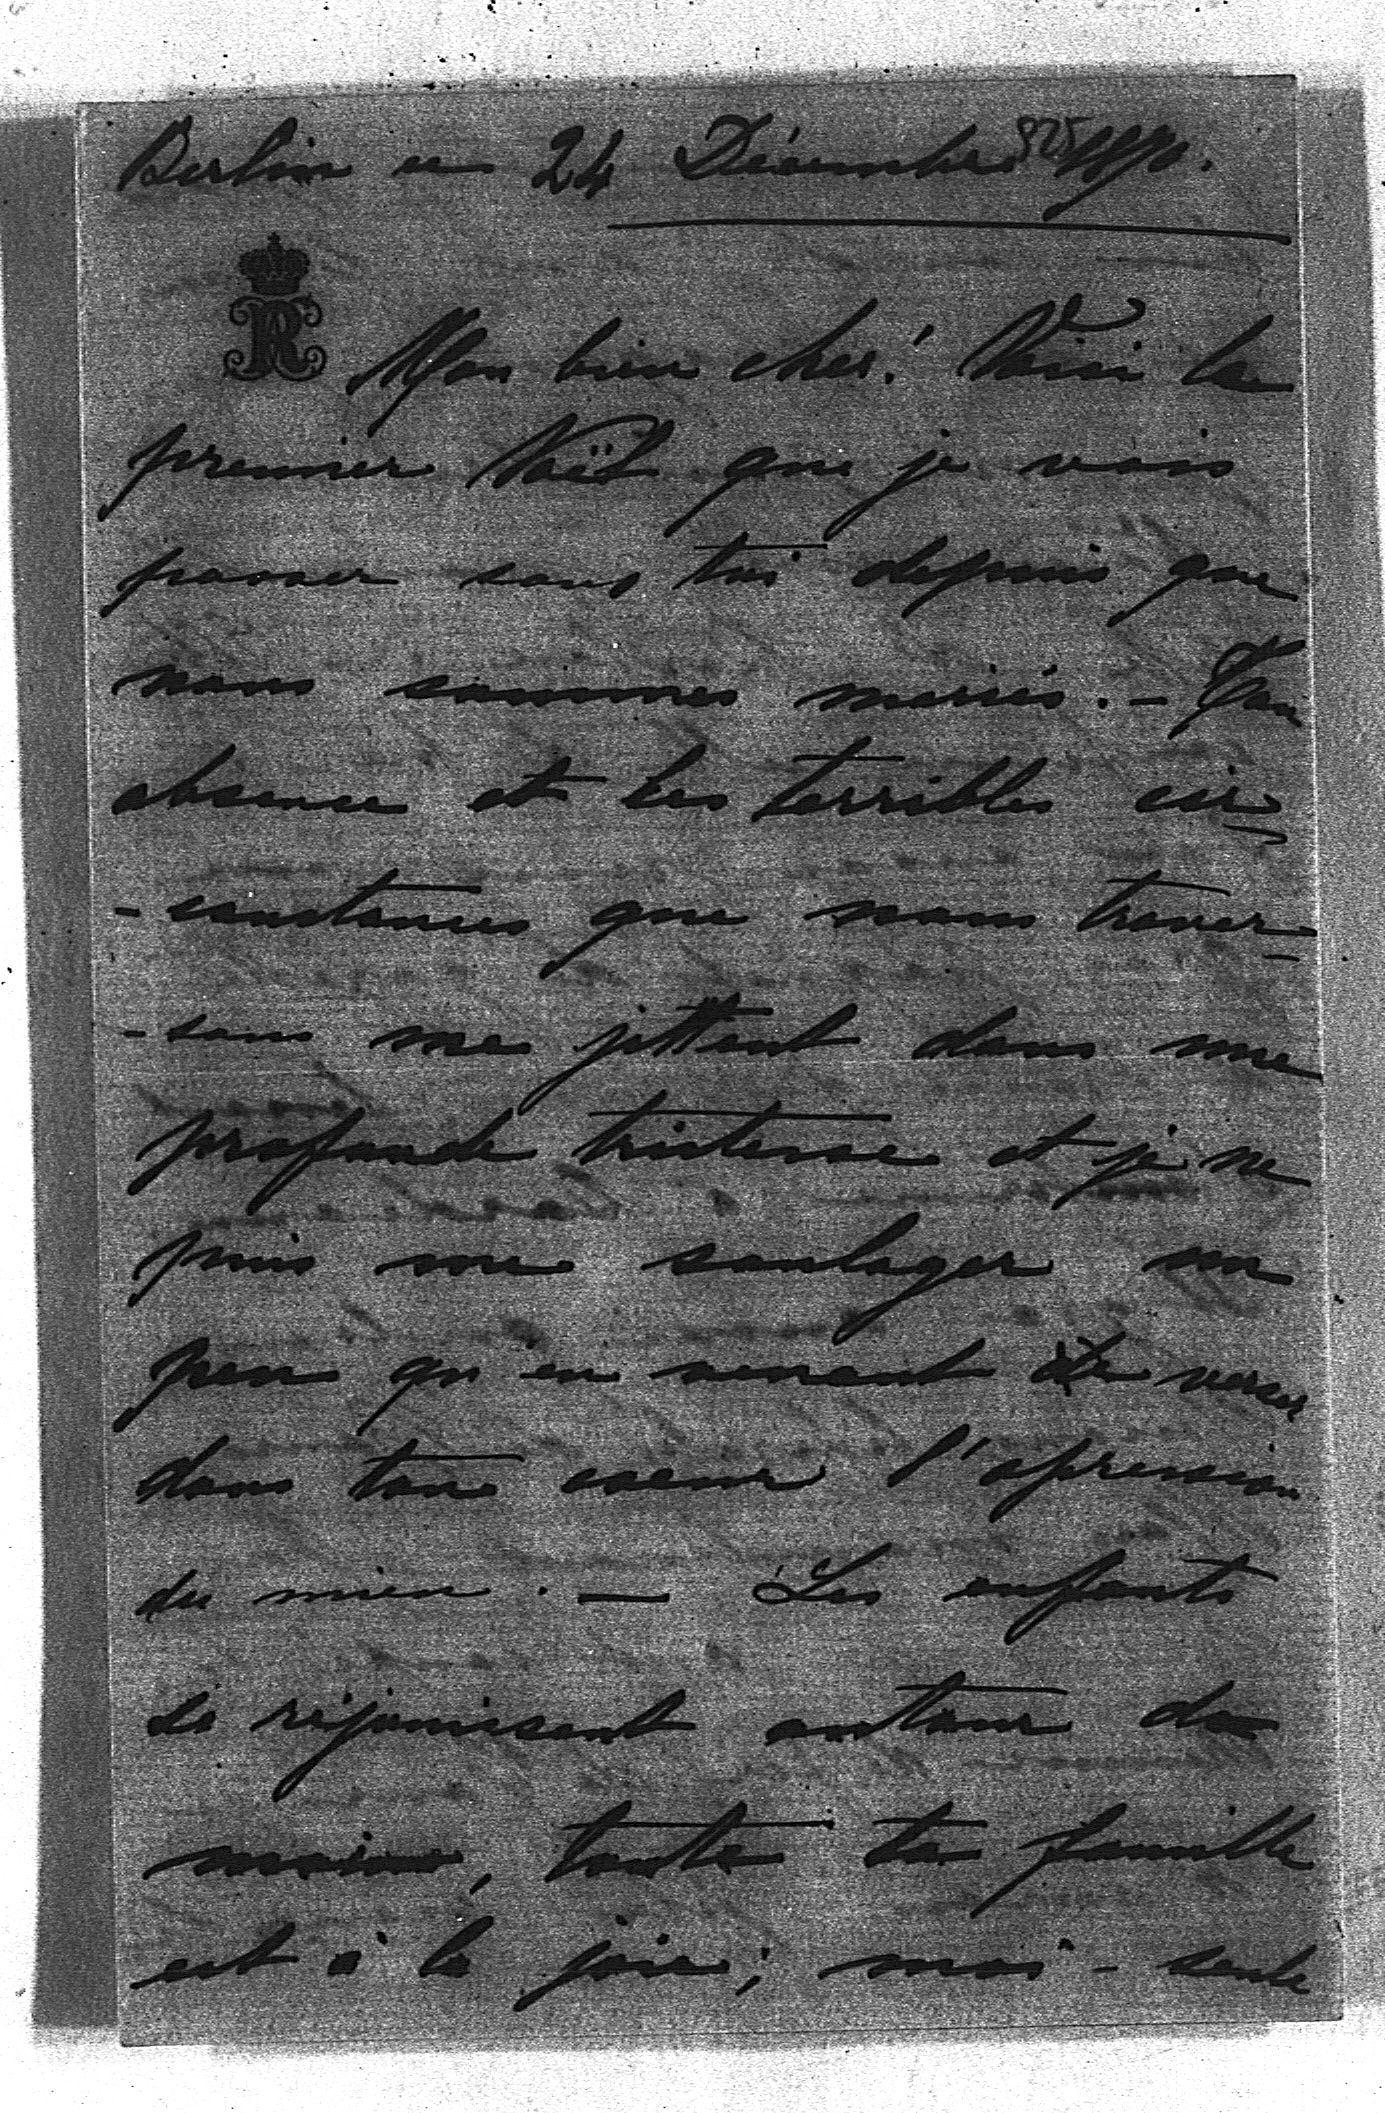 Berlin ce 24 Décembre 1870.
825
R
Mon bien cher! Voici le
premier Noël que je vais
passer sans toi depuis que
nous sommes mariés. - Ton
absence et les terribles cir-
-constances que nous traver-
-sons me jettent dans une
profonde tristesse et je ne
puis me soulager un
peu qu'en venant verser
dans ton coeur l'opression
du mien. — Les enfants
se réjouissent autour de
moi, toute ta famille
est à la joie; moi - seule